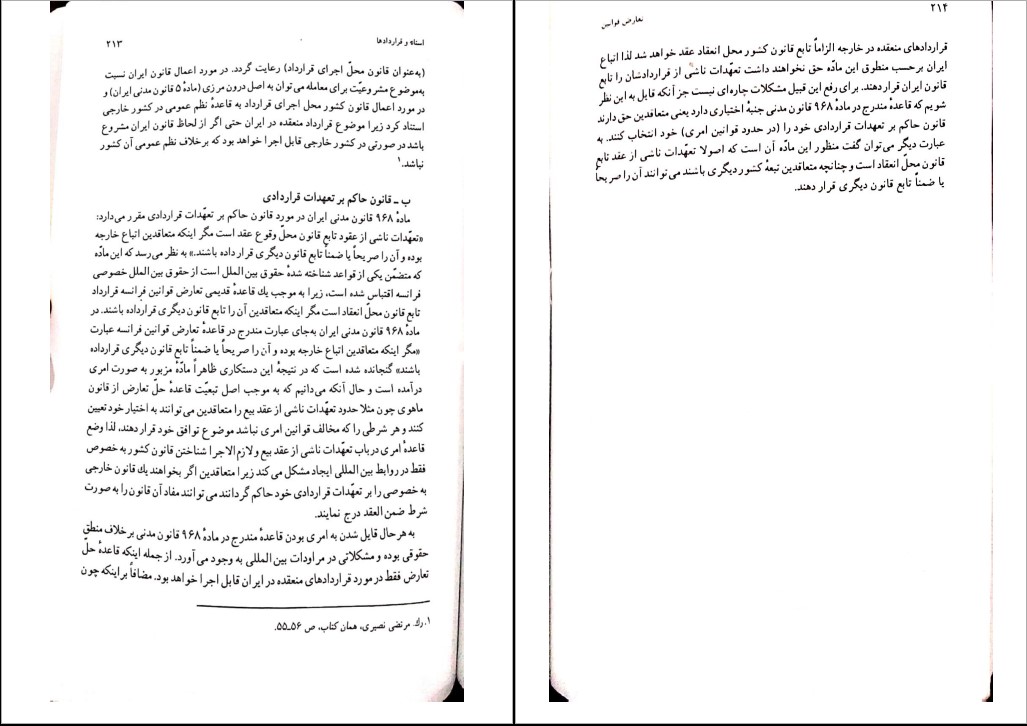 اسناد و قراردادها ۲۱۳
(به‌عنوان قانون محلّ اجرای قرارداد) رعایت گردد. در مورد اعمال قانون ایران نسبت
به‌موضوع مشروعیّت برای معامله می‌توان به اصل درون مرزی (مادهٔ ۵ قانون مدنی ایران) و
در مورد اعمال قانون کشور محل اجرای قرارداد به قاعدهٔ نظم عمومی در کشور خارجی
استناد کرد زیرا موضوع قرارداد منعقده در ایران حتی اگر از لحاظ قانون ایران مشروع
باشد در صورتی در کشور خارجی قابل اجرا خواهد بود که برخلاف نظم عمومی آن کشور
نباشد.۱
ب ـ قانون حاکم بر تعهدات قراردادی
مادهٔ ۹۶۸ قانون مدنی ایران در مورد قانون حاکم بر تعهّدات قراردادی مقرر می‌دارد:
«تعهّدات ناشی از عقود تابع قانون محلّ وقوع عقد است مگر اینکه متعاقدین اتباع خارجه
بوده و آن را صریحاً یا ضمناً تابع قانون دیگری قرار داده باشند.» به نظر می‌رسد که این مادّه
که متضمّن یکی از قواعد شناخته شدهٔ حقوق بین الملل است از حقوق بین الملل خصوصی
فرانسه اقتباس شده است، زیرا به موجب یك قاعدهٔ قدیمی تعارض قوانین فرانسه قرارداد
تابع قانون محلّ انعقاد است مگر اینکه متعاقدین آن را تابع قانون دیگری قرارداده باشند. در
مادهٔ ۹۶۸ قانون مدنی ایران به‌جای عبارت مندرج در قاعدهٔ تعارض قوانین فرانسه عبارت
«مگر اینکه متعاقدین اتباع خارجه بوده و آن را صریحاً یا ضمناً تابع قانون دیگری قرارداده
باشند» گنجانده شده است که در نتیجهٔ این دستکاری ظاهراً مادّهٔ مزبور به صورت امری
درآمده است و حال آنکه می‌دانیم که به موجب اصل تبعیّت قاعدهٔ حلّ تعارض از قانون
ماهوی چون مثلا حدود تعهّدات ناشی از عقد بیع را متعاقدین می‌توانند به اختیار خود تعیین
کنند و هر شرطی را که مخالف قوانین امری نباشد موضوع توافق خود قرار دهند، لذا وضع
قاعدهٔ امری در باب تعهّدات ناشی از عقد بیع و لازم الاجرا شناختن قانون کشور به خصوص
فقط در روابط بین المللی ایجاد مشکل می‌کند زیرا متعاقدین اگر بخواهند یك قانون خارجی
به خصوصی را بر تعهّدات قراردادی خود حاکم گردانند می‌توانند مفاد آن قانون را به صورت
شرط ضمن العقد درج نمایند.
به هر حال قایل شدن به امری بودن قاعدهٔ مندرج در مادهٔ ۹۶۸ قانون مدنی برخلاف منطق
حقوقی بوده و مشکلاتی در مراودات بین المللی به وجود می آورد. از جمله اینکه قاعدهٔ حلّ
تعارض فقط در مورد قراردادهای منعقده در ایران قابل اجرا خواهد بود. مضافاً بر اینکه چون
۱. رك. مرتضی نصیری، همان کتاب، ص ۵۶ـ۵۵.
۲۱۴
تعارض قوانین
قراردادهای منعقده در خارجه الزاماً تابع قانون کشور محل انعقاد عقد خواهد شد لذا اتباع
ایران برحسب منطوق این مادّه حق نخواهند داشت تعهّدات ناشی از قراردادشان را تابع
قانون ایران قرار دهند. برای رفع این قبیل مشکلات چاره‌ای نیست جز آنکه قایل به این نظر
شویم که قاعدهٔ مندرج در مادهٔ ۹۶۸ قانون مدنی جنبهٔ اختیاری دارد یعنی متعاقدین حق دارند
قانون حاکم بر تعهدات قراردادی خود را (در حدود قوانین امری) خود انتخاب کنند. به
عبارت دیگر می‌توان گفت منظور این مادّه آن است که اصولا تعهّدات ناشی از عقد تابع
قانون محلّ انعقاد است و چنانچه متعاقدین تبعهٔ کشور دیگری باشند می‌توانند آن را صریحاً
یا ضمناً تابع قانون دیگری قرار دهند.